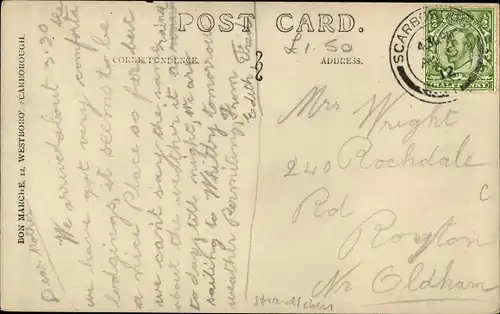 POST CARD.
CORRESPONDENCE.
ADDRESS.
BON MARCHE, 12, WESTBORO', SCARBOROUGH.
£1.50
SCARBORO
12
HALFPENNY
Dear Mother
We arrived about 3-30
we have got very comforta
lodgings, it seems to be
a nice Place so far but
we can't say the same
about the weather it as
to day, till night, we are
sailing to Whitby tomorrow
weather Permitting, From
Edith
Mrs Wright
240 Rochdale
Rd
Royton
Nr Oldham